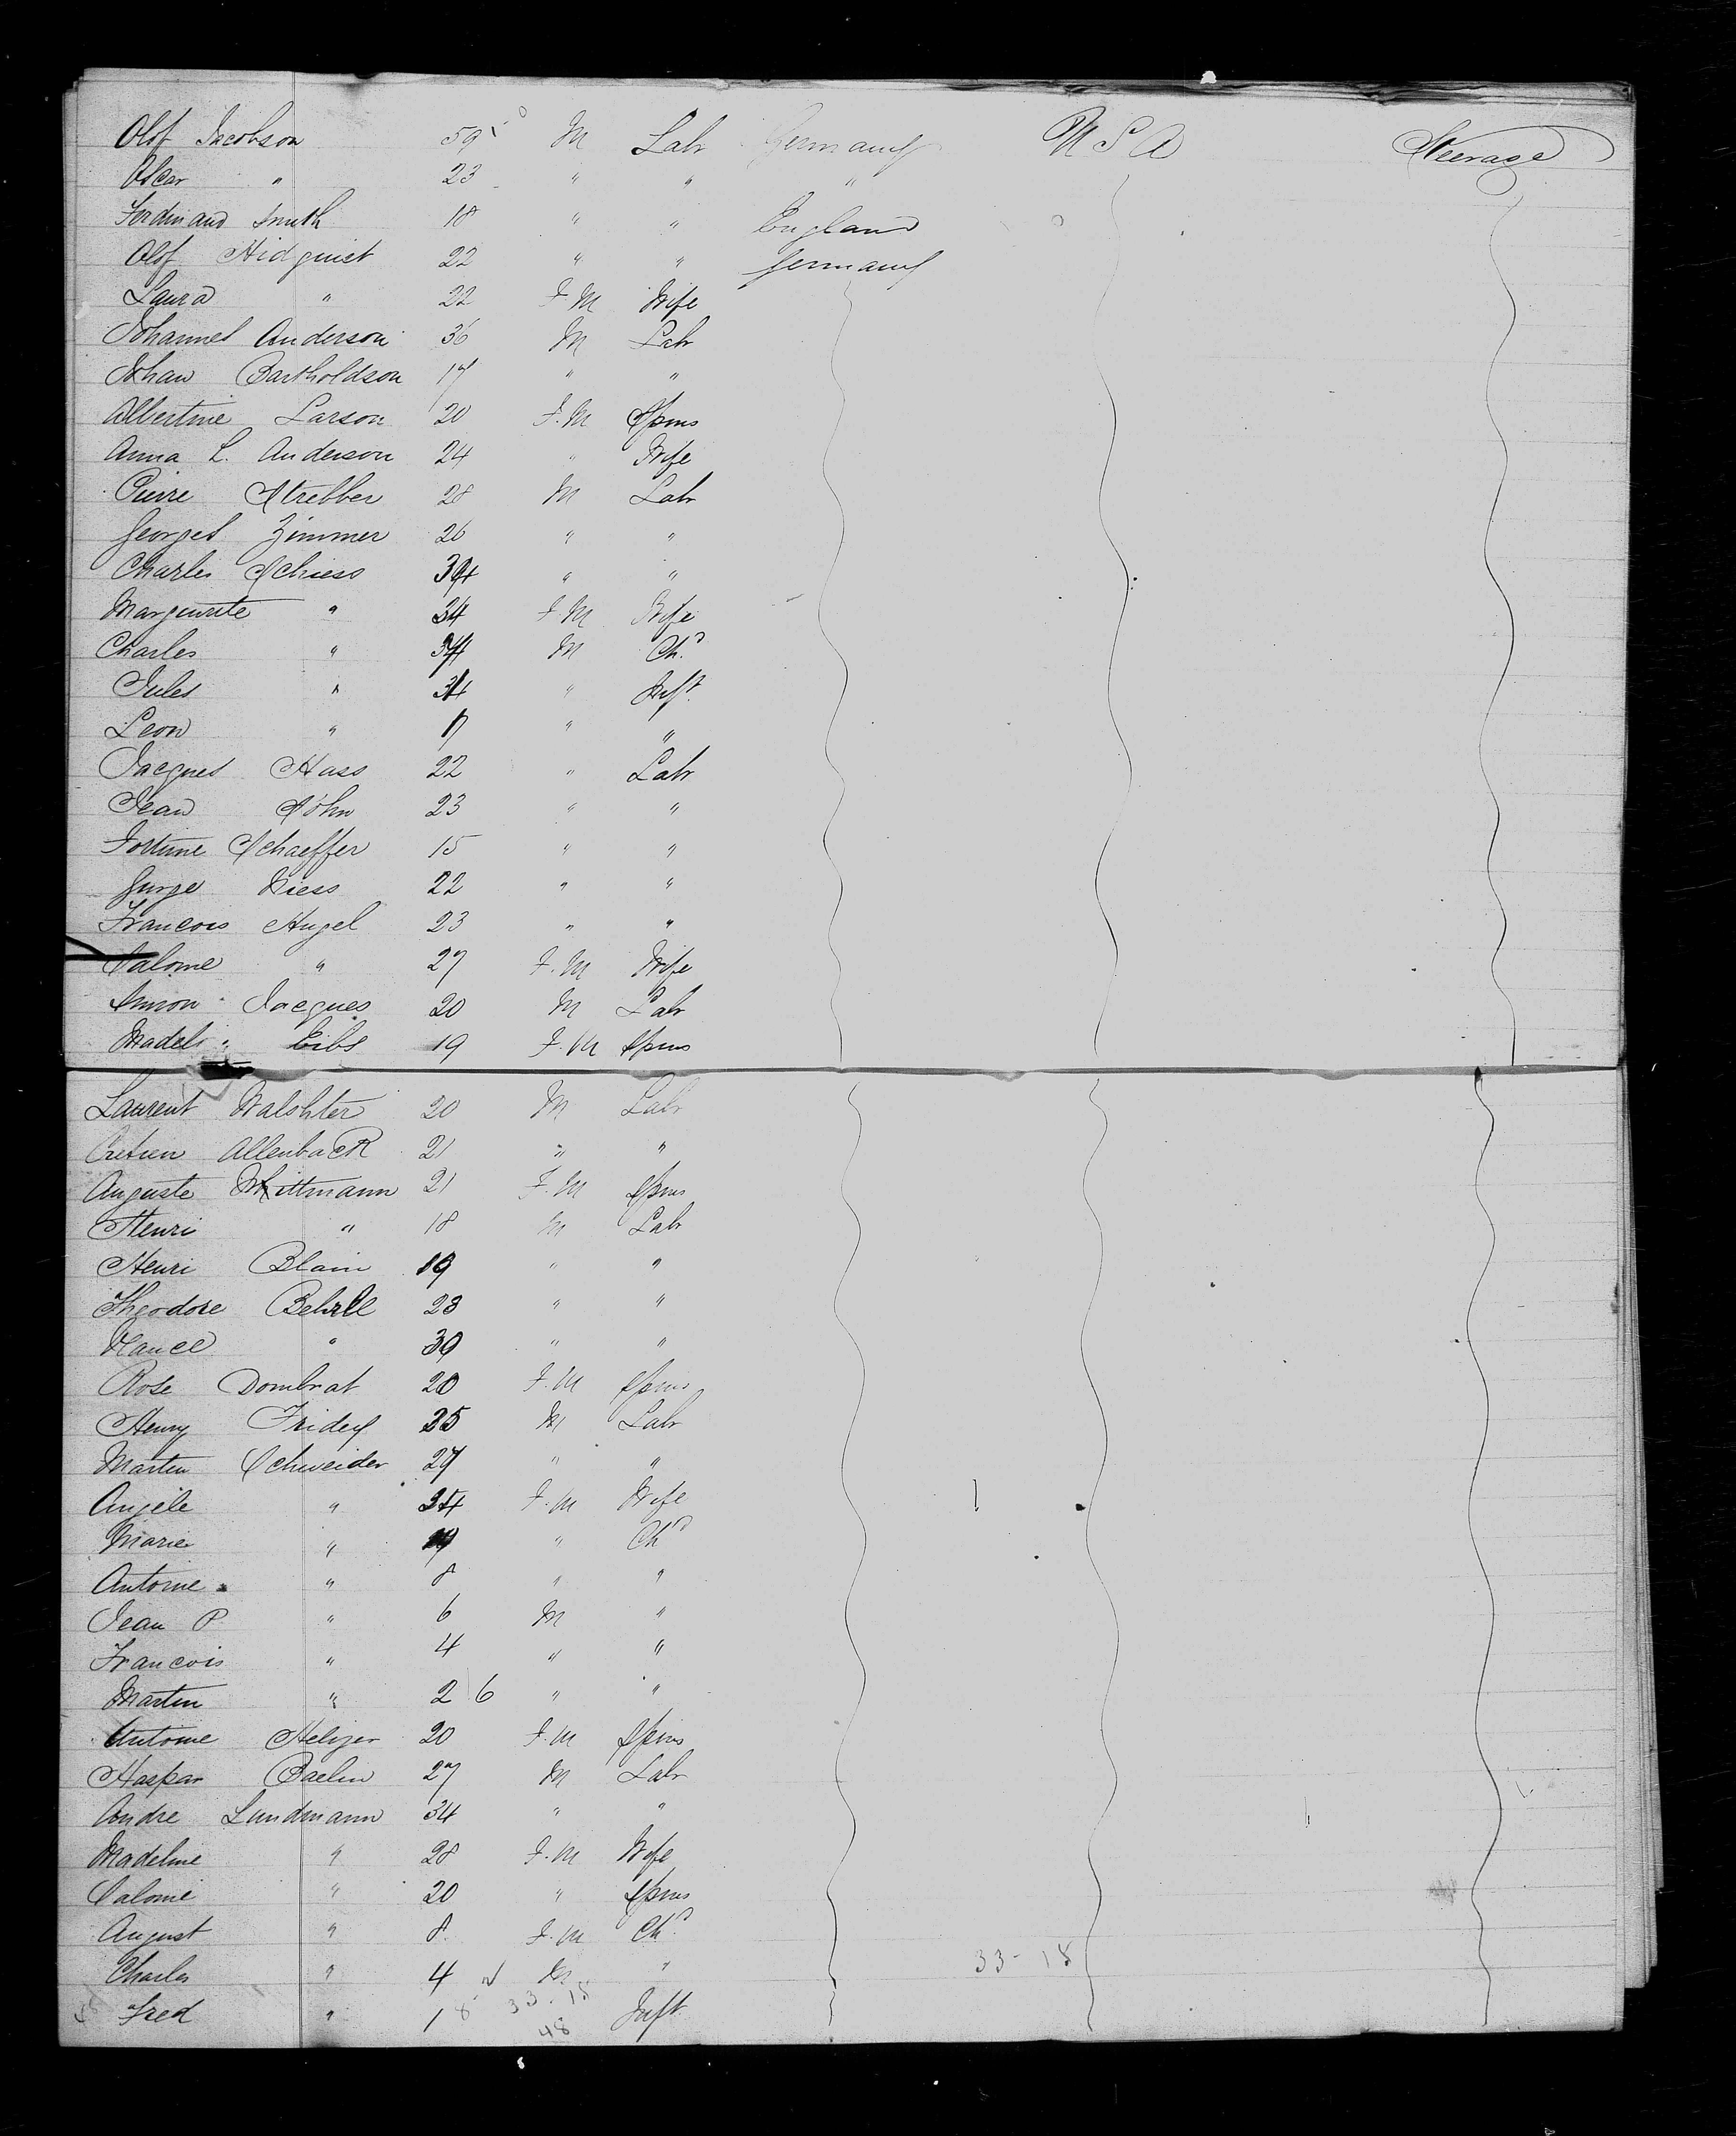 Olof Jacobson 59 M Labr Germany U S A Steerage
Oscar " 23 " " "
Ferdinand Smith 18 " " England
Olof Hidquist 22 " " Germany
Laura " 22 F.M Wife
Johannes Anderson 36 M Labr
Johan Bartholdson 17 " "
Albertine Larson 20 F.M Spins
Anna L. Anderson 24 " Wife
Pierre Strebber 28 M Labr
Georges Zimmer 26 " "
Charles Schiess 34 " "
Marguerite " 34 F.M Wife
Charles " M Chd
Jules " " Inft
Leon " " "
Jacques Hass 22 " Labr
Jean Sohn 23 " "
Fortune Schaeffer 15 " "
Gurge Niess 22 " "
Francois Hugel 23 " "
Salome " 27 F.M Wife
Simon Jacques 20 M Labr
Madel Eibs 19 F.M Spins
Laurent Walshter 20 M Labr
Cretien Allenback 21 " "
Auguste Wittmann 21 F.M Spins
Henri " 18 M Labr
Henri Blain 19 " "
Theodore 23 " "
" 30 " "
Rose Dombrat 20 F.M Spins
Henry Fridey 35 M Labr
Martin Schweider 27 " "
Angele " 34 F.M Wife
Marie " " Chd
Antoine " 8 " "
Jean P " 6 M "
Francois " 4 " "
Martin " 2 6 " "
Antoine Helizer 20 F.M Spins
Haspar Baelin 27 M Labr
Andre Lundmann 34 " "
Madeline " 28 F.M Wife
Salome " 20 " Spins
August " 8 F.M Chd
Charles " 4 M " 33-18
Fred " 1 8 33-18 Inft
48